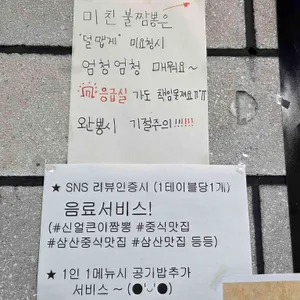 미친 불짬뽕은
"덜맵게" 미요청시
엄청엄청 매워요~
응급실 가도 책임못져요ㅠㅠ
완뽕시 기절주의!!!!!
★ SNS 리뷰인증시 (1테이블당1개)
음료서비스!
(#신얼큰이짬뽕 #중식맛집
#삼산중식맛집 #삼산맛집 등등)
★ 1인 1메뉴시 공기밥추가
서비스 ~ (●'◡'●)